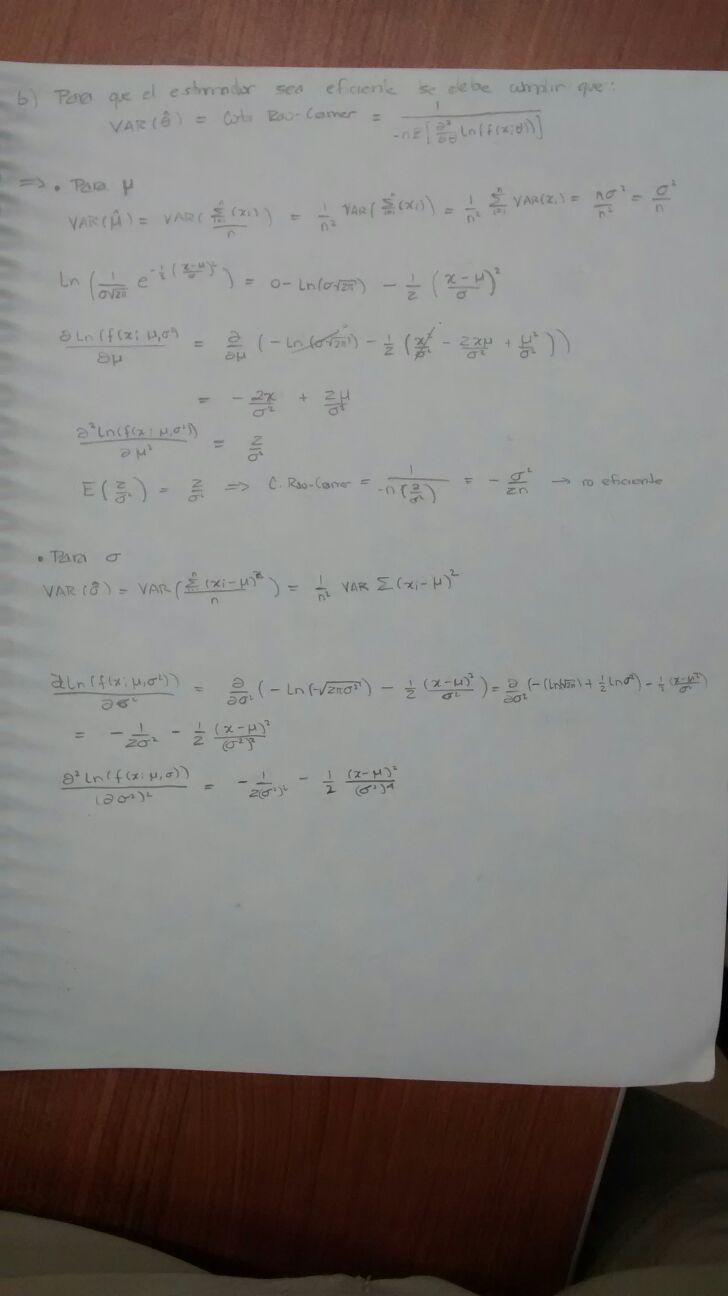 b) Para que el estimador sea eficiente se debe cumplir que:
VAR(θ̂) = Cota Rao-Cramer = 1 / (-nE[∂²/∂θ ln(f(x;θ))])
⇒ • Para μ
VAR(μ̂) = VAR(Σⁿᵢ₌₁(xi)/n) = 1/n² VAR(Σⁿᵢ₌₁(xi)) = 1/n² Σⁿᵢ₌₁ VAR(xi) = nσ²/n² = σ²/n
Ln(1/(σ√2π) e^(-1/2 ((x-μ)/σ)²)) = 0 - ln(σ√2π) - 1/2 ((x-μ)/σ)²
∂Ln(f(x; μ,σ²)/∂μ = ∂/∂μ (-ln(σ√2π) - 1/2 (x²/σ² - 2xμ/σ² + μ²/σ²))
= -2x/σ² + 2μ/σ²
∂²Ln(f(x; μ,σ²))/∂μ² = 2/σ²
E(2/σ²) = 2/σ² ⇒ C. Rao-Cramer = 1/(-n(2/σ²)) = - σ²/2n → no eficiente
• Para σ
VAR(σ̂) = VAR(Σⁿᵢ₌₁(xi-μ)²/n) = 1/n² VAR Σ(xi-μ)²
∂Ln(f(x; μ,σ²))/∂σ² = ∂/∂σ² (-Ln(√2πσ²) - 1/2 (x-μ)²/σ²) = ∂/∂σ² (-(ln√2π) + 1/2 lnσ²) - 1/2 (x-μ)²/σ²)
= - 1/2σ² - 1/2 (x-μ)²/(σ²)²
∂²Ln(f(x; μ,σ))/(∂σ²)² = - 1/2(σ²)² - 1/2 (x-μ)²/(σ²)⁴